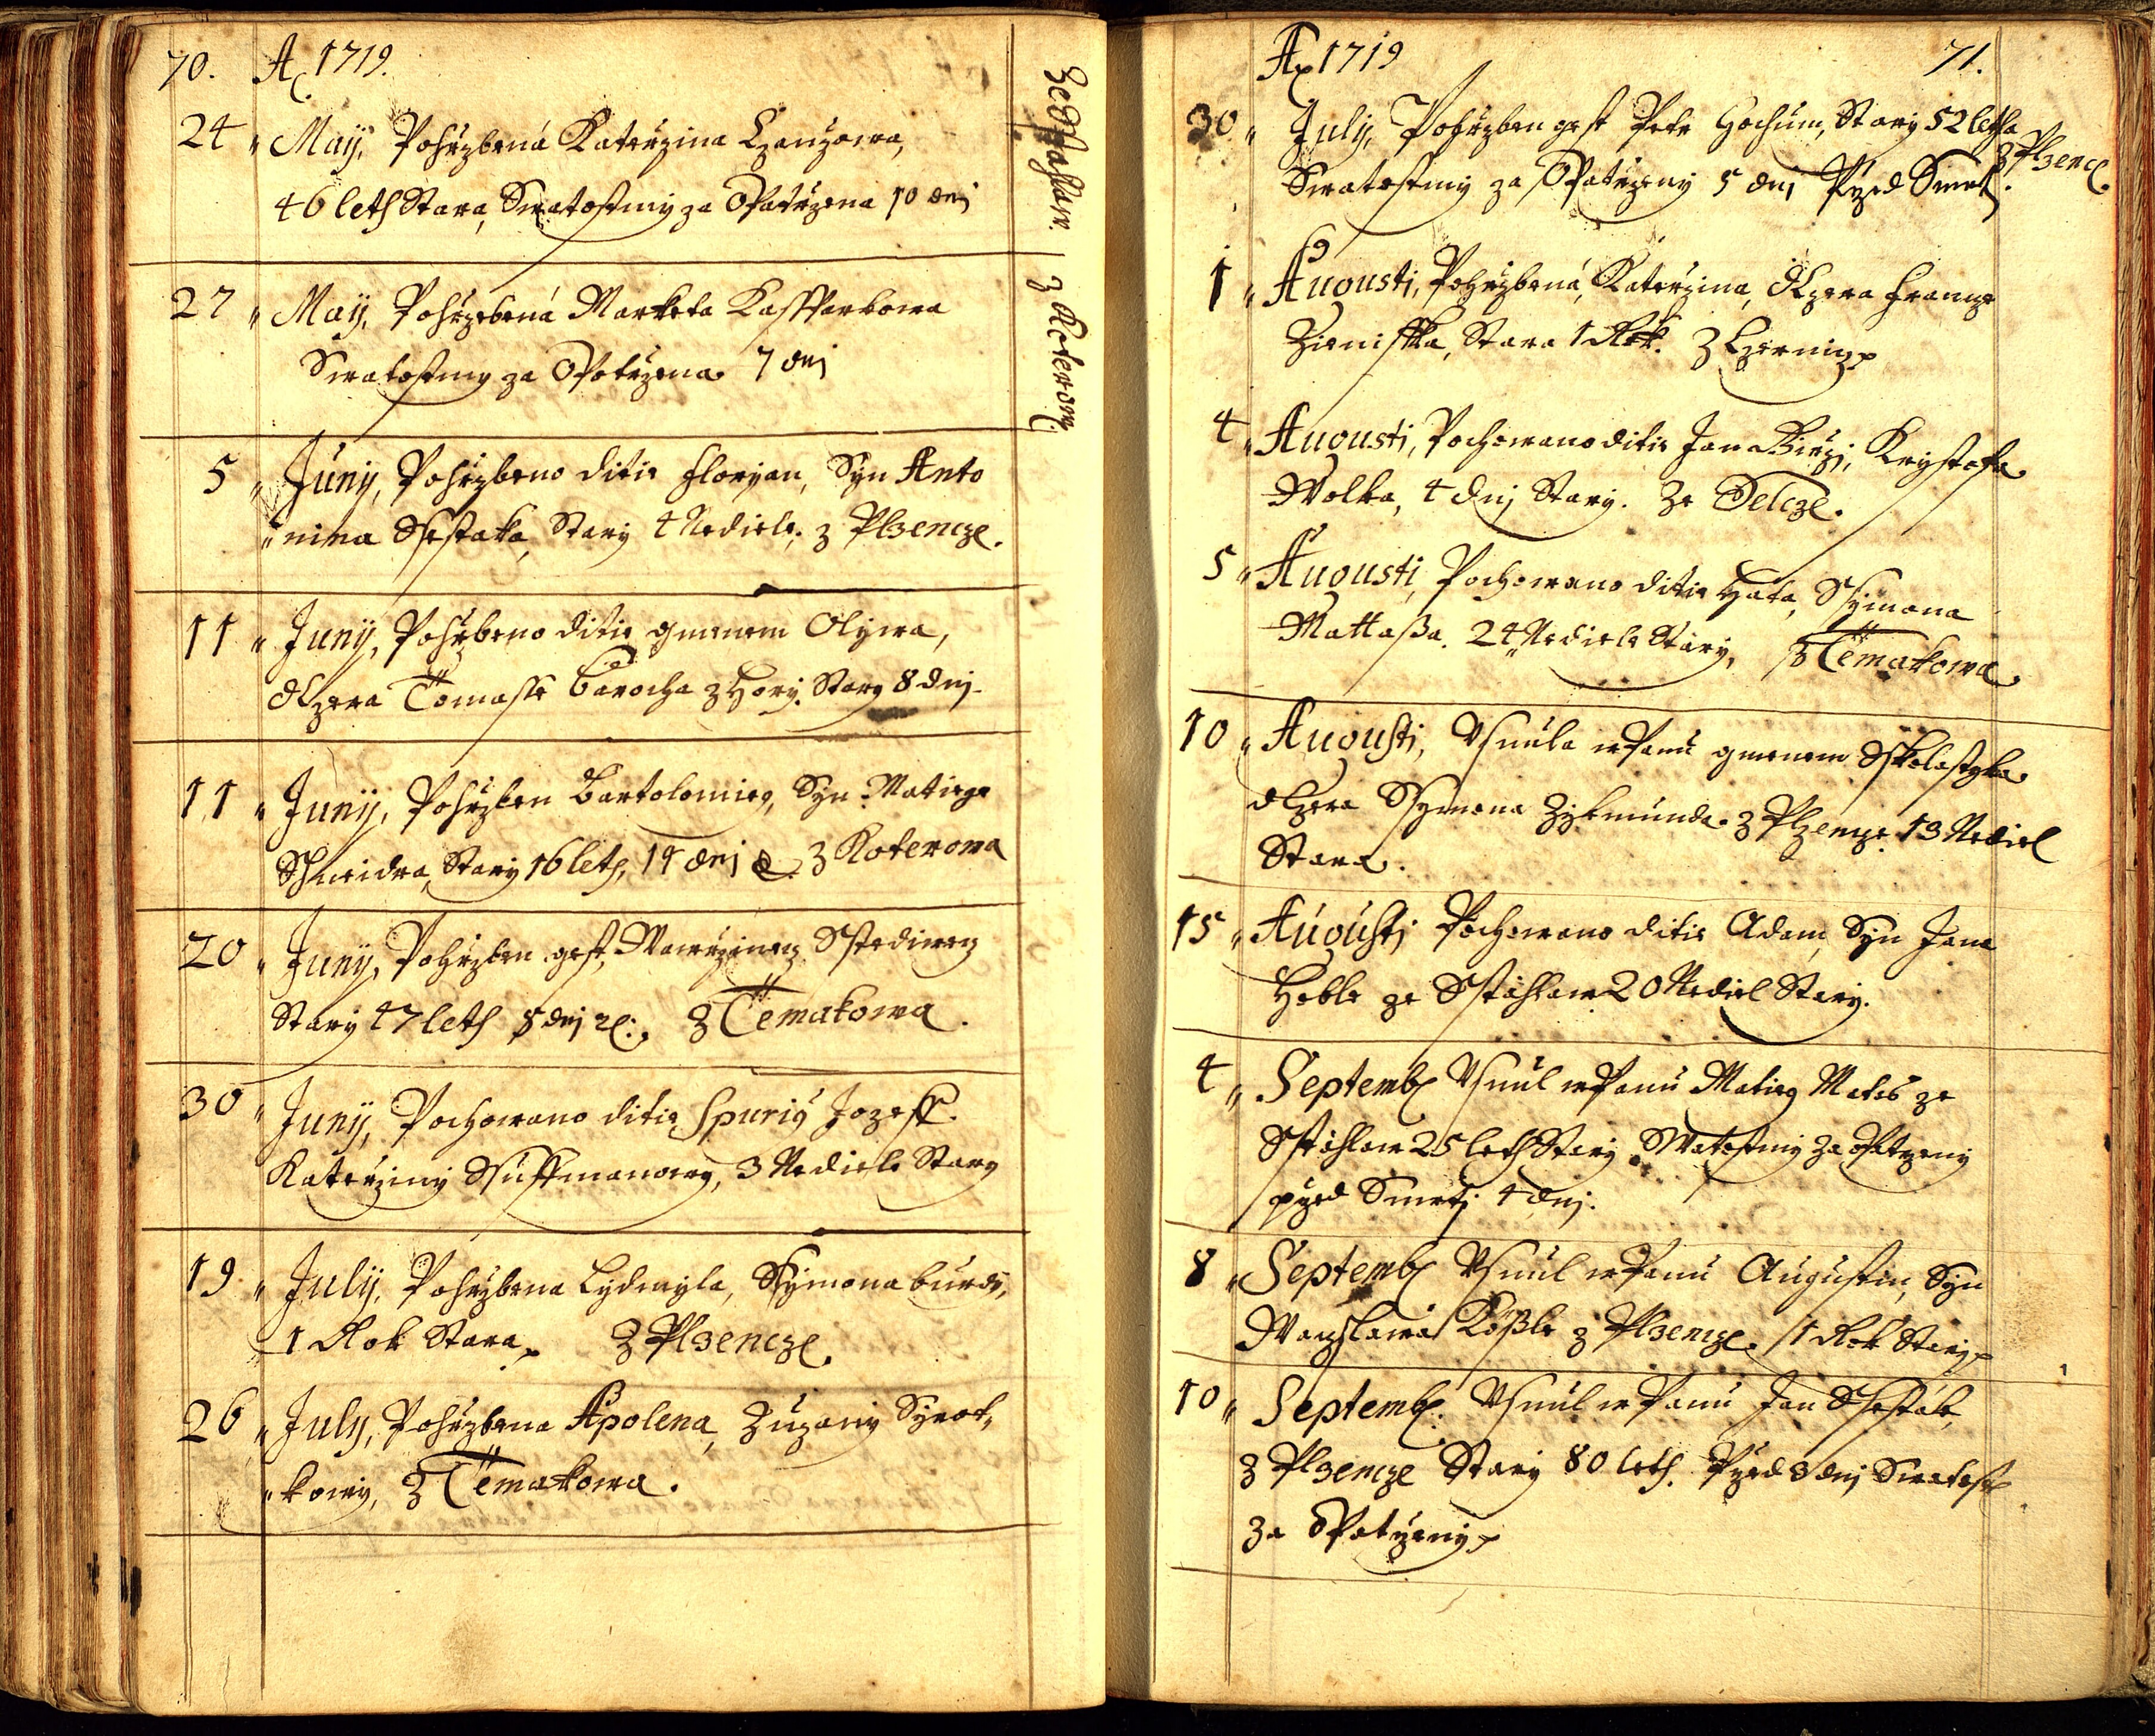 70. A. 1719.
24 May, Pohrzbená Katerzina Czanzowa,
46 leth Stara, Swatostmy za Opatrzena 10 dnj
Ze Sstahlaw.
27 May, Pohrzebená Marketa Kasskparkowa
Swatostmy za Opatrzena 7 dnj
z Koterow
5 Juny, Pohrzbeno ditie Floryan, Syn Anto
nina Ssestaka, Stary 4 Nediele, z Plzencze.
11 Juny, Pohrzbeno ditie gmenem Olywa,
dczera Tomasse Barocha z Hory. Stary 8 dnj.
11 Juny, Pohrzben Bartolomieg, Syn Matiege
Schneidra, Stary 16 leth, 14 dnj z Koterowa
20 Juny, Pohrzben gest, Wawrzinecz Sstediwey
Stary 47 leth 8 dnj z Temakowa.
30 Juny, Pochowano ditie Spurig Jozeff
Katerziny 3 Nediele Stary
19 July, Pohrzbena Lydmyla, Ssymona Burdi,
1 Rok Stara, z Plzencze.
26 July, Pohrzbena Apolena, Zuzany Syrot,
kowy, z Temakowa.
A 1719 71.
30 July, Pohrzben gest Petr Hochum, Stary 52 letha
z Plzencz.
Swatostmy za Opatrzeny 5 dnj Przed Smrtj.
1 Augusti, Pohrzbená, Katerzina, dczera Francze
Zienisska, Stara 1 Rok. z Czernicz
4 Augusti, Pochowano ditie Jan Girzj, Krystofa
Wolka, 4 dnj Stary. Ze Selcze.
5 Augusti, Pochowano ditie Hata, Ssymona
Mattaßa. 24 Nediele Stary, z Temakowa.
10 Augusti, Usnula w Panu gmenem Skolastyka
dczera Ssymona Zykmunda z Plzencze. 13 Nediel
Stara.
15 Augusti Pochowano ditie Adam, Syn Jana
Heble ze Sstahlaw 20 Nediel Stary.
4 Septemb Usnul w Panu Matieg Mates ze
Sstahlaw 25 leth Stary Swatostmy za Opatrzeny
przed Smrtj 4 dnj.
8 Septemb Usnul w Panu Augustin, Syn
Waczlawa Kößle z Plzencze. 1 Rok Stary
10 Septemb. Usnul w Panu Jan Ssesták,
z Plzencze Stary 80 leth. Przed 8 dnj Swatost
za Opatrzeny